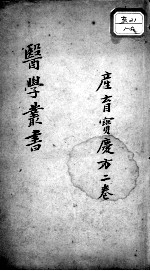 產育寶慶方二卷
醫學叢書